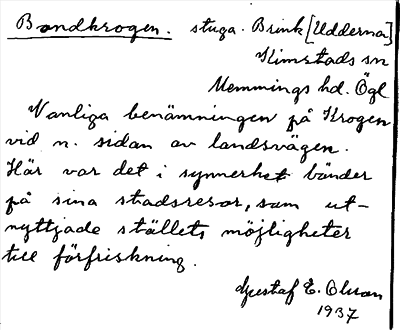 Bondkrogen. stuga. Brink [Udderna]
Kimstads sn
Memmings hd. Ögl
Vanliga benämningen på Krogen
vid n. sidan av landsvägen.
Här var det i synnerhet bönder
på sina stadsresor, som ut-
nyttjade ställets möjligheter
till förfriskning.
Gustaf E. Olsson
1937